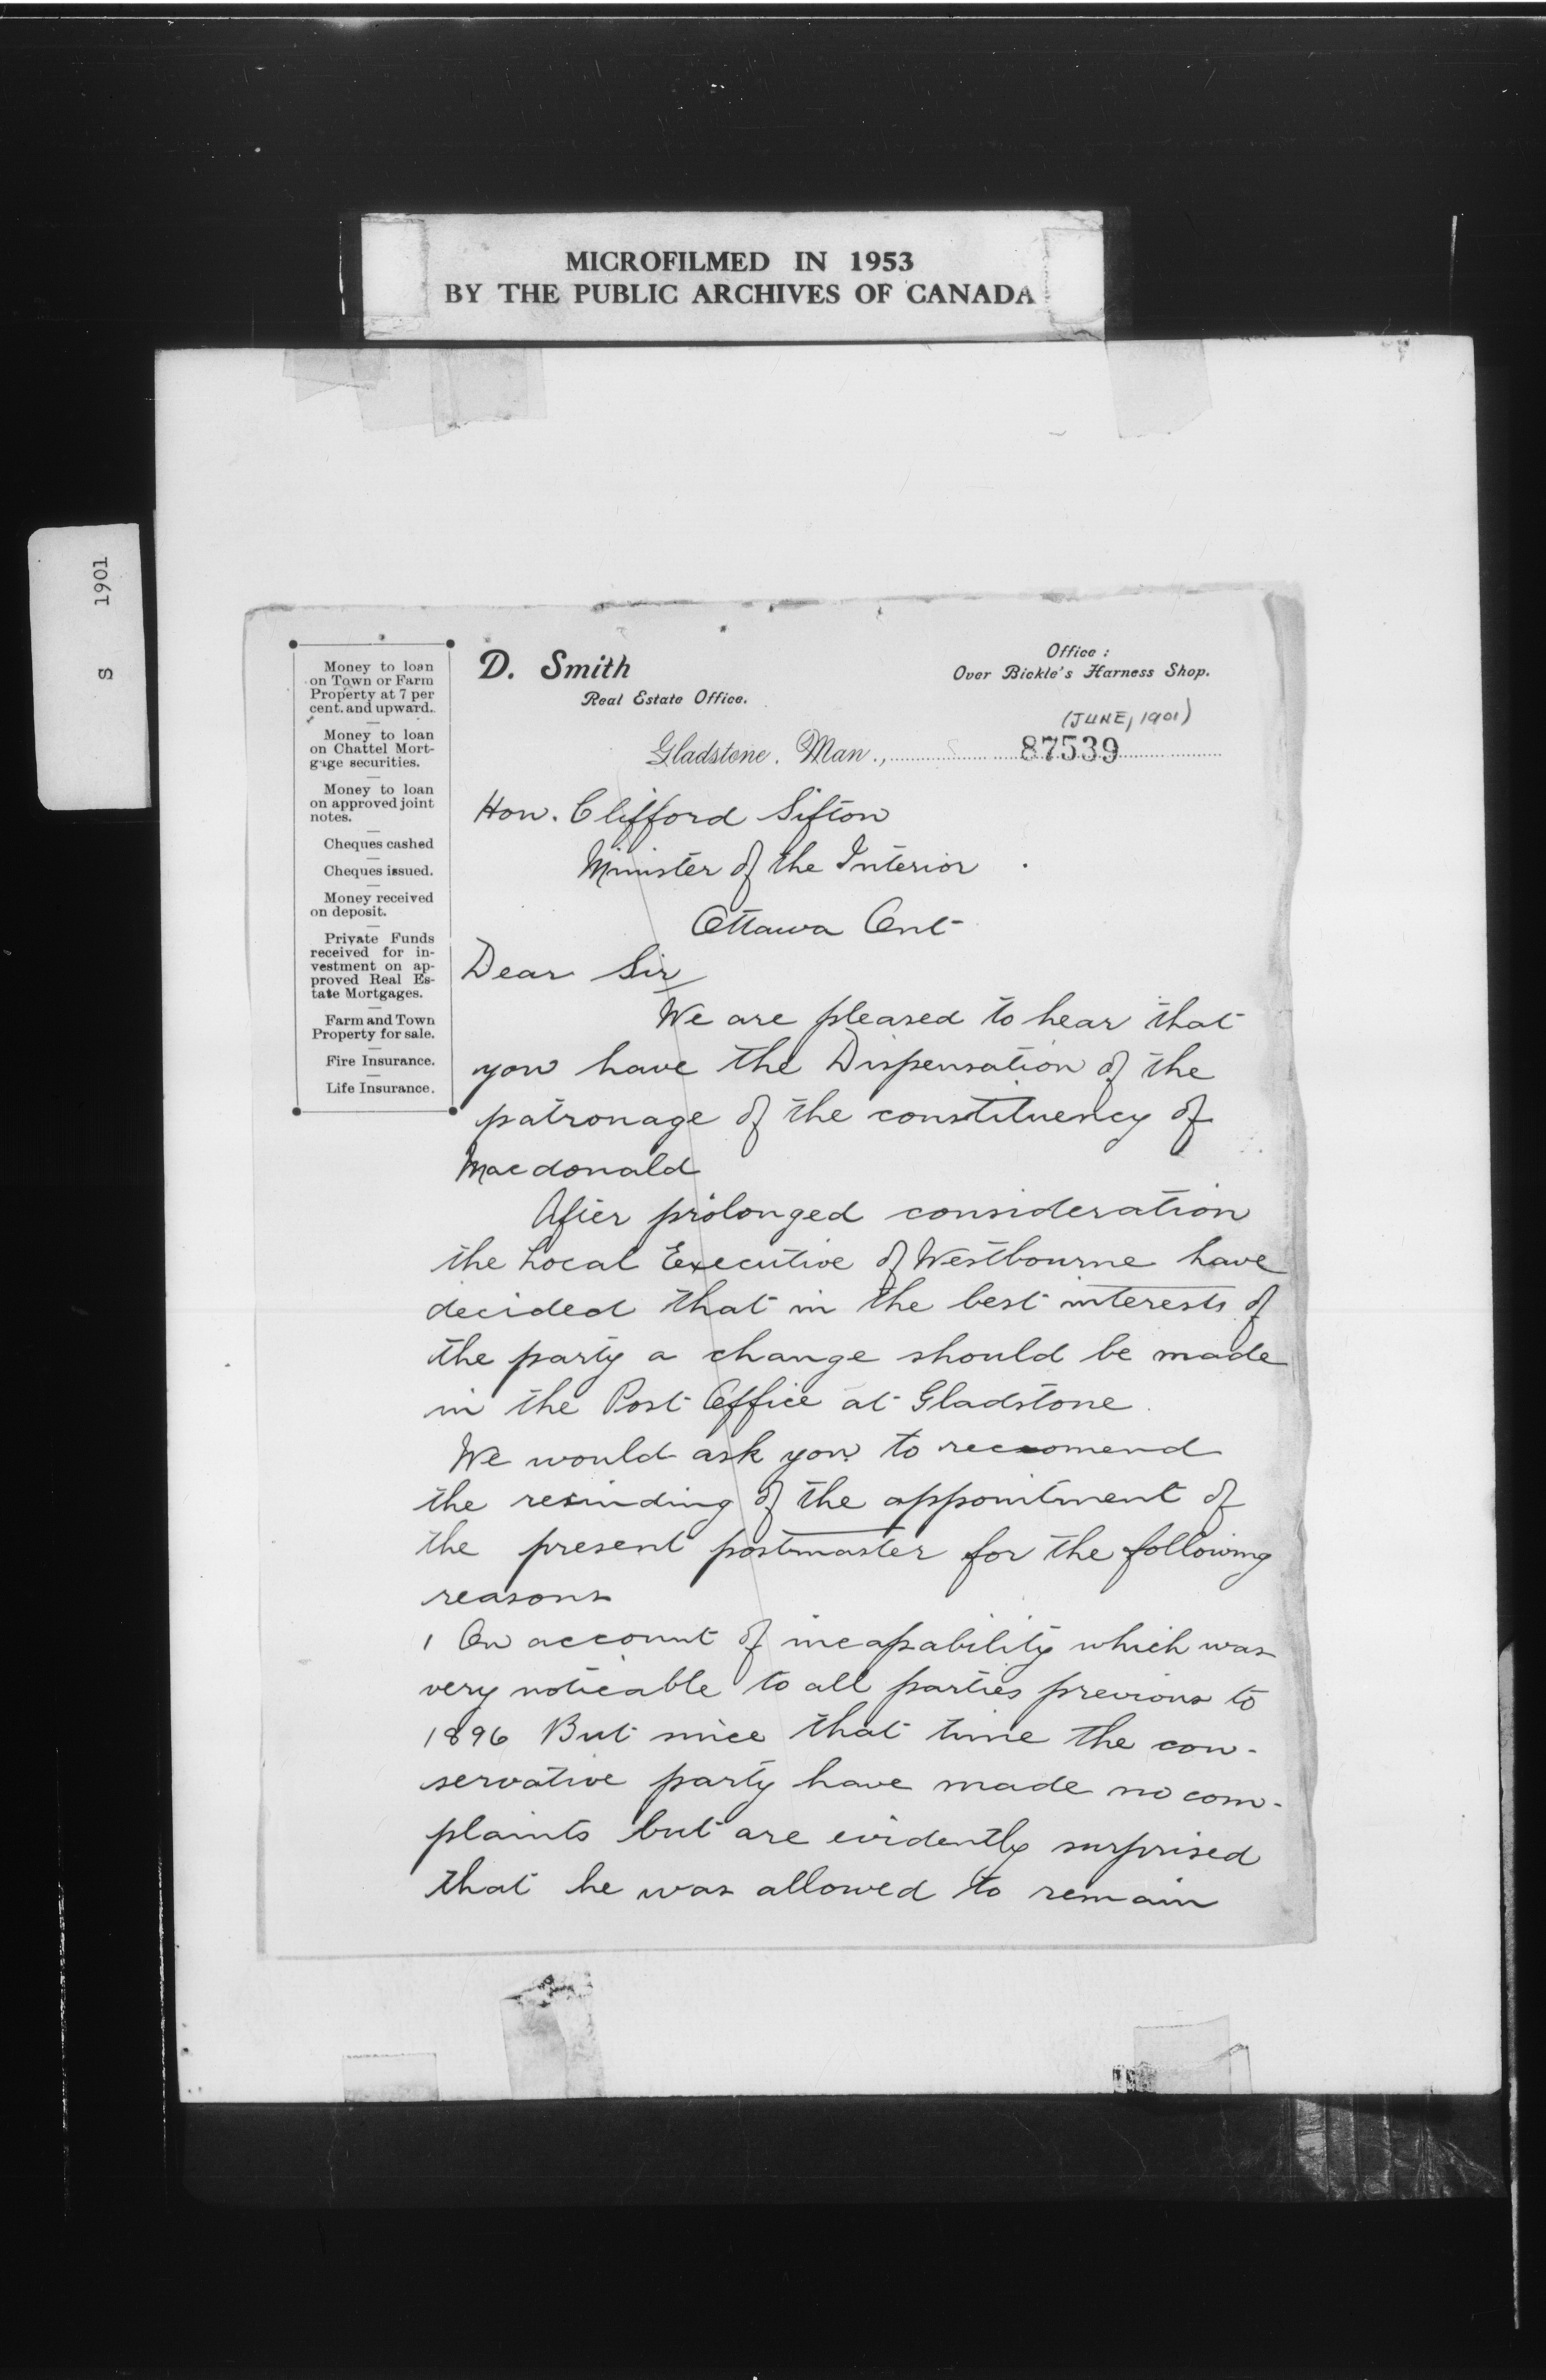 MICROFILMED IN 1953
BY THE PUBLIC ARCHIVES OF CANADA
S 1901
Money to loan
on Town or Farm
Property at 7 per
cent. and upward.
Money to loan
on Chattel Mort-
gage securities.
Money to loan
on approved joint
notes.
Cheques cashed
Cheques issued.
Money received
on deposit.
Private Funds
received for in-
vestment on ap-
proved Real Es-
tate Mortgages.
Farm and Town
Property for sale.
Fire Insurance.
Life Insurance.
D. Smith
Real Estate Office.
Office :
Over Bickle's Harness Shop.
(JUNE, 1901)
Gladstone, Man., 87539
Hon. Clifford Sifton
Minister of the Interior
Ottawa Ont
Dear Sir
We are pleased to hear that
you have the Dispensation of the
patronage of the constituency of
Macdonald
After prolonged consideration
the Local Executive of Westbourne have
decided that in the best interests of
the party a change should be made
in the Post Office at Gladstone.
We would ask you to reccomend
the resinding of the appointment of
the present postmaster for the following
reasons
1 On account of incapability which was
very noticable to all parties previous to
1896 But since that time the con-
servative party have made no com-
plaints but are evidently surprised
that he was allowed to remain